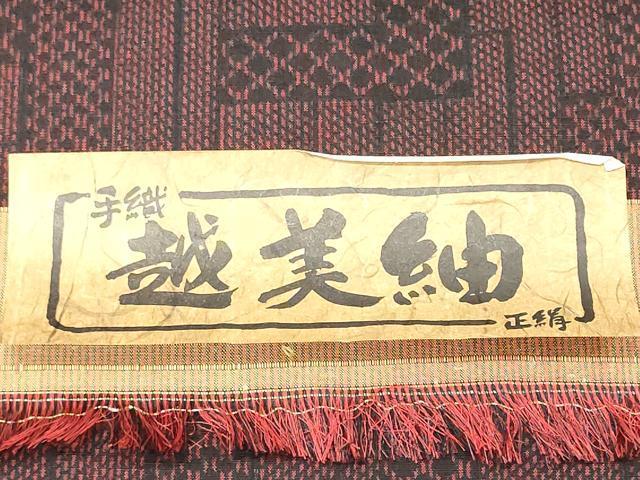 手織
越美紬
正絹